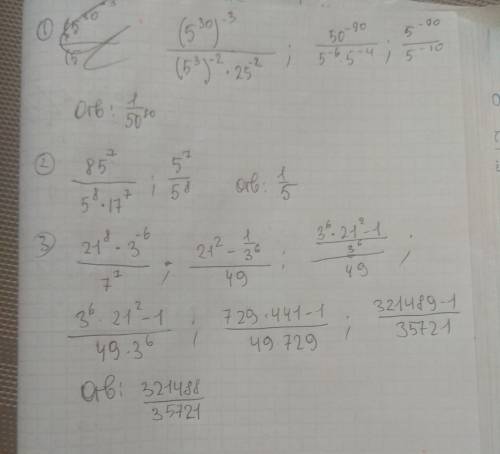 ① (5^30)^-3 / ((5^3)^-2 · 25^-2) ; 50^-90 / (5^-6 · 5^-4) ; 5^-90 / 5^-10
Отв: 1/50^80
② 85^7 / (5^8 · 17^7) ; 5^7 / 5^8 отв: 1/5
③ (21^8 · 3^-6) / 7^7 ; (21^2 - 1/3^6) / 49 ; ((3^6 · 21^2 - 1) / 3^6) / 49 ;
(3^6 · 21^2 - 1) / (49 · 3^6) ; (729 · 441 - 1) / (49 729) ; (321489 - 1) / 35721
Отв: 321488 / 35721